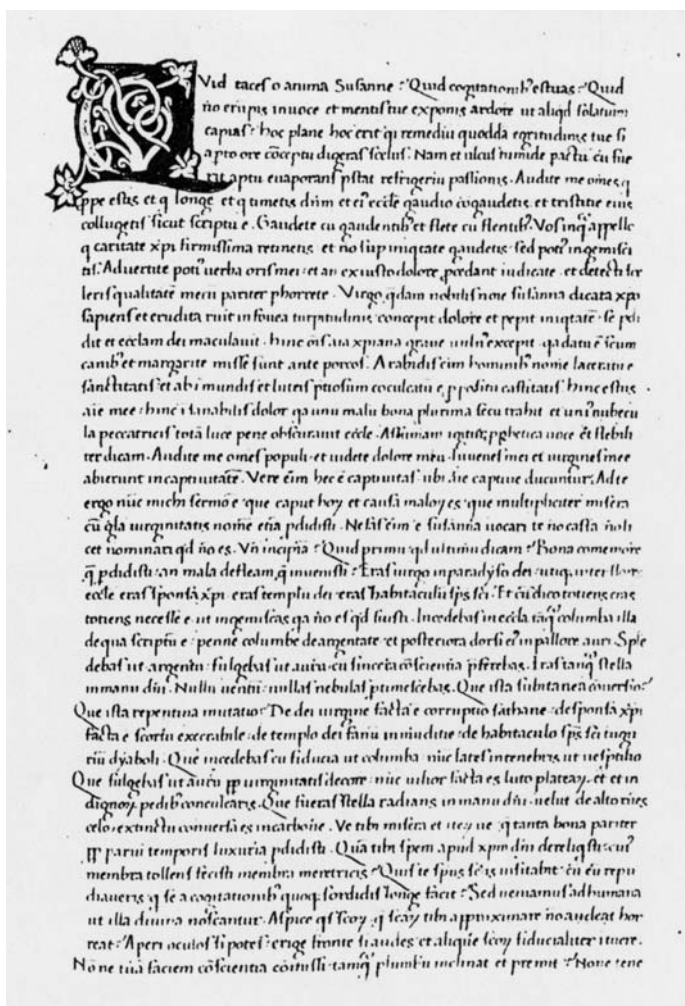 Quid taces o anima Susanne? Quid cogitationibꝰ estuas? Quid
nō erūpis in uoce et mentis tue exponis ardorē ut aliqd solatium
capias? hoc plane hoc erit qi remediū quoddā egritudinis tue si
aperto ore cōceptū digeras scelus. Nam et ulcus tumide cū fue
rit aptū euaporans pstat refrigeriū passionis. Audite me om̄es q
ppe estis et q longe et q timetis dn̄m et eccl̄e gaudio cōgaudetis et tristitie eiꝰ
collugetis sicut scriptū ē. Gaudete cū gaudentibꝰ et flete cū flentibꝰ. Vos inq appello
q caritate xp̄i firmissima retinetis et nō sup iniqtate gaudetis sed potiꝰ ingemisci
tis. Aduertite potiꝰ uerba oris mei et an ex iusto dolore pcedant iudicate et detecti sce
leris qualitatē mecū pariter phorrete. Virgo qdam nobilis noīe susanna dicata xp̄o
sapiens et erudita ruit in fouea turpitudinis concepit dolorē et pepit iniqtatē sē pdi
dit et eccl̄am dei maculauit. hinc ōīs aīa xp̄iana graue uulnꝰ excepit qa datū ē sc̄um
canibꝰ et margarite misse sunt ante porcos. A rabidis eīm hominibꝰ nomē laceratū ē
sanctitatis et ab īmundis et luteis ptiosum cōculcatū ē ppositū castitatis hinc estus
aīe mee hinc īsanabilis dolor qa unū malū bona plurima secū trahit et uniꝰ nubecu
la peccatricis totā lucē pene obscurauit eccl̄e. Assumam igitur pphetica uoce et flebili
ter dicam. Audite me om̄es populi et uidete dolorē meū. iuuenes mei et uirgines mee
abierunt in captiuitatē. Vere eīm hec ē captiuitas ubi aīe captiue ducuntur. Ad te
ergo nūc michi sermo ē que caput hoꝝ et causa maloꝝ es que multipliciter misera
cū gl̄a uirginitatis nomē etiā pdidisti. Nefas eīm ē susanna uocari te nō casta n̄ li
cet nominari qd nō es. Vn̄ incipiā? Quid primū qd ultimū dicam? Bona cōmemorē
q̄ pdidisti an mala defleam q̄ inuenisti? Eras uirgo in paradyso dei utiq inter flores
eccl̄e eras sponsa xp̄i eras templū dei eras habitaculū sp̄s sc̄i. Et cū dico totiens eras
totiens necesse ē ut ingemiscas qa nō es qd fuisti. Incedebas in eccl̄a tāq columba illa
de qua scriptū ē penne columbe deargentate et posteriora dorsi eiꝰ in pallore auri. Splē
debas ut argentū fulgebas ut aurū cū sincera cōscientia pcedebas. Eras tanq stella
in manu dn̄i. Nullū uentū nullas nebulas ptimescebas. Que ista subitanea cōuersio?
Que ista repentina mutatio? De dei uirgine facta ē corruptio sathane de sponsa xp̄i
facta ē scortū execrabile de templo dei fanū inmunditie de habitaculo sp̄s sc̄i tuguri
riū dyaboli. Que incedebas cū fiducia ut columba nūc lates in tenebris ut uespilio
Que fulgebas ut aurū pp uirginitatis decorē nūc uilior facta es luto plateaꝝ et et in
dignoꝝ pedibꝰ conculcaris. Que fueras stella radians in manu dn̄i uelut de alto ruēs
celo extincta conuersa es in carbonē. Ve tibi misera et iteꝝ ue q tanta bona pariter
pp parui temporis luxuria pdidisti. Quā tibi spem apud xp̄m dn̄m dereliqsti cuiꝰ
membra tollens fecisti membra meretricis? Quis te sp̄s sc̄s uisitabit cū eū repu
diaueris q se a cogitationibꝰ quoq sordidis longe facit? Sed ueniamus ad humana
ut illa diuina noscantur. Aspice qs sc̄oꝝ q sc̄aꝝ tibi approximare nō audeat hor
reat? Aperi oculos si potes erige frontē si audes et aliquē sc̄oꝝ fiducialiter ītuere.
Nōne tuā faciem cōscientia cōmissi tamq plumbū inclinat et premit? None tene